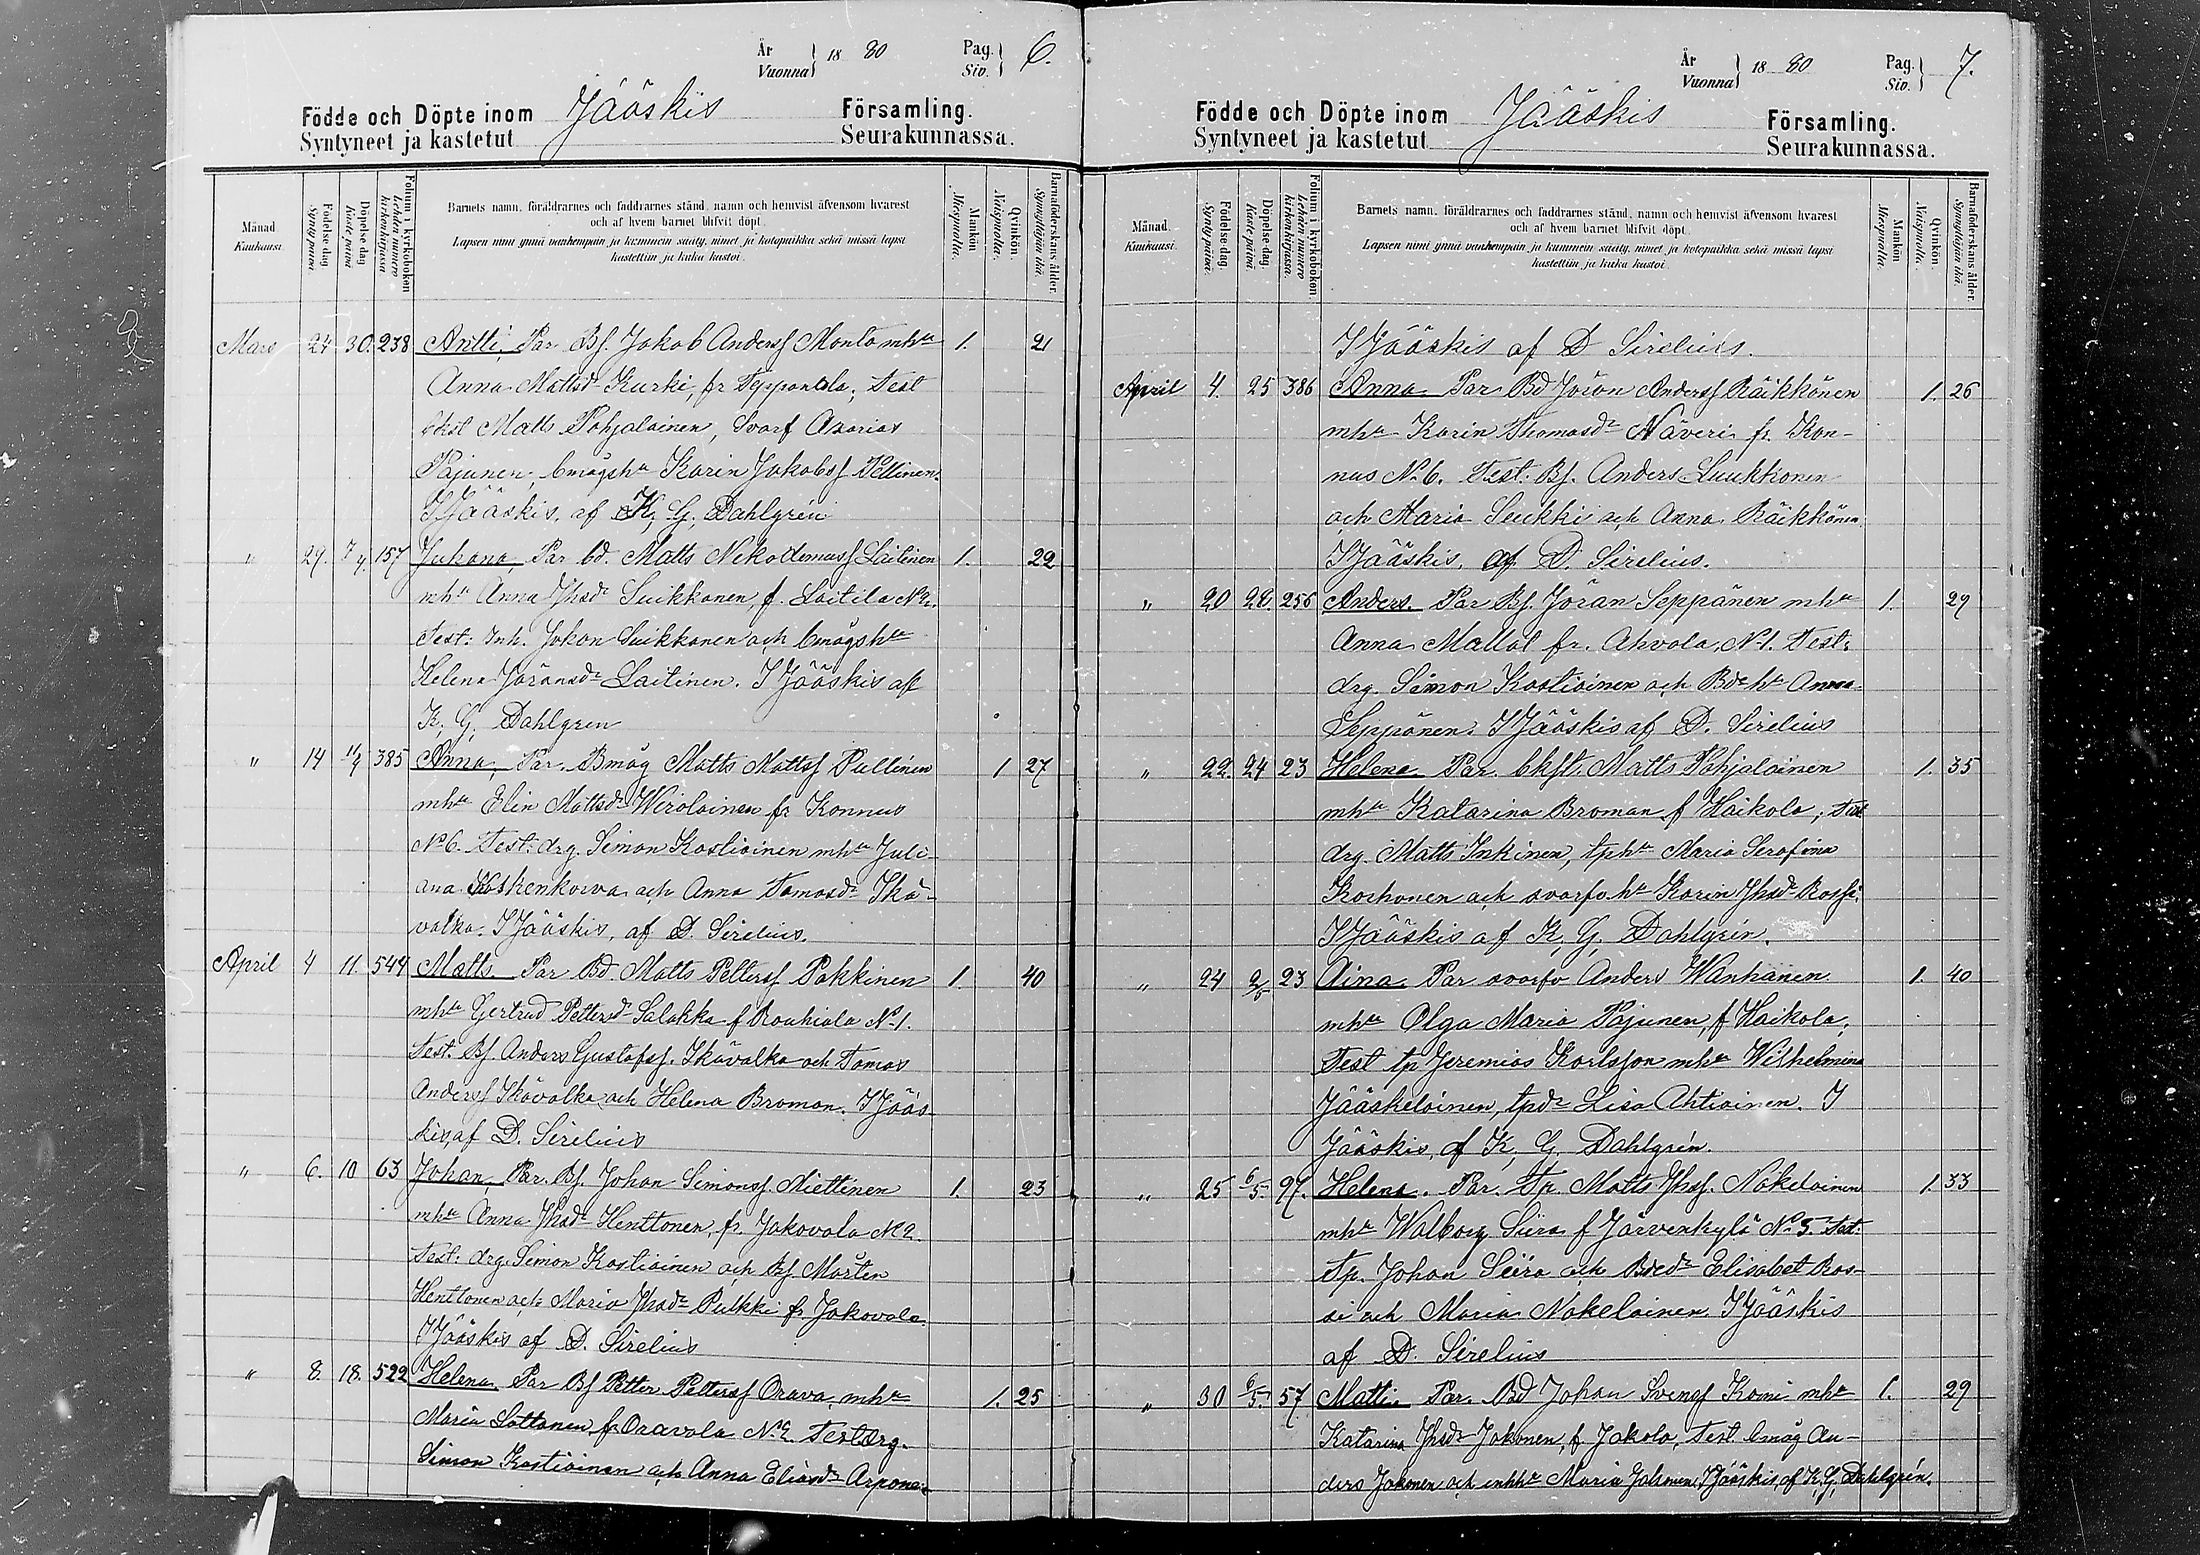 År
Vuonna } 18 80 Pag.
Siv. } 6.
Födde och Döpte inom Jääskis Församling.
Syntyneet ja kastetut Seurakunnassa.
Månad
Kuukausi.
Födelse dag.
Syntymä päivä.
Döpelse dag.
Kaste päivä
Folium i kyrkoboken
Lehden numero kirkonkirjassa.
Barnets namn, föräldrarnes och faddrarnes stånd, namn och hemvist äfvensom hvarest
och af hvem barnet blifvit döpt.
Lapsen nimi ynnä vanhempain ja kummein sääty, nimet ja kotopaikka sekä missä lapsi
kastettiin ja kuka kastoi.
Mankön
Miespuolta.
Qvinkön.
Naispuolta.
Barnaföderskans ålder.
Synnyttäjän ikä.
Mars 24 30. 238 Antti, Par. Bf. Jakob Andersf Monto mhu 1. 21
Anna Mattsdr Kurki, fr Teppanala; Test
bkst Matts Pohjalainen, Svarf Asarias
Pajunen, bmågshu Karin Jakobsf Pellinen.
I Jääskis, af K. G. Dahlgrén
" 29. 7/4. 157 Juhana, Par bd. Matts Nikodemusf Laitinen 1. 22
mhu Anna Jhsdr Suikkanen, f. Laitila No 2.
Test: Inh. Johan Suikkanen och bmågshu
Helena Göransdr Laitinen. I Jääskis af
K. G. Dahlgren
" 14 11/4 385 Anna, Par. Bmåg Matts Mattsf Pullinen 1 27
mhu Elin Mattsdr Wirolainen fr Konnus
No 6. Test: drg. Simon Kostiainen mhu Juli-
ana Koskenkorva och Anna Tomasdr Ikä-
valko. I Jääskis, af D. Sirelius.
April 4 11. 544 Matts Par Bd. Matts Pettersf Pakkinen 1. 40
mhu Gertrud Pettersdr Salakka f Rouhiala No 1.
Test. Bf. Anders Gustafsf. Ikävalko och Tomas
Andersf Ikävalko och Helena Broman. I Jääs-
kis, af D. Sirelius
" 6. 10 63 Johan, Par. Bf. Johan Simonsf. Miettinen 1. 23
mhu Anna Jhsdr Henttonen, fr. Jakovala No 2.
Test: drg. Simon Kostiainen och Bf. Mårten
Henttonen och Maria Jhsdr Pulkki fr. Jakovala.
I Jääskis af D. Sirelius
" 8. 18. 522 Helena. Par Bf Petter Pettersf Orava, mhu 1. 25
Maria Lattonen fr. Oravala No 2. Test drg.
Simon Kostiainen och Anna Eliasdr Arponen
År
Vuonna } 18 80 Pag.
Siv. } 7.
Födde och Döpte inom Jääskis Församling.
Syntyneet ja kastetut Seurakunnassa.
Månad.
Kuukausi.
Födelse dag.
Syntymä päivä.
Döpelse dag.
Kaste päivä.
Folium i kyrkoboken.
Lehden numero kirkonkirjassa.
Barnets namn, föräldrarnes och faddrarnes stånd, namn och hemvist äfvensom hvarest
och af hvem barnet blifvit döpt.
Lapsen nimi ynnä vanhempain ja kummein sääty, nimet ja kotopaikka sekä missä lapsi
kastettiin ja kuka kastoi.
Mankön
Miespuolta.
Qvinkön.
Naispuolta.
Barnaföderskans ålder.
Synnyttäjän ikä.
I Jääskis af D Sirelius.
April 4. 25 386 Anna Par Bd Jöran Andersf Räikkönen 1. 26
mhu Karin Thomasdr Näveri fr. Kon-
nus No 6. Test: Bf. Anders Luukkonen
och Maria Seukki och Anna Räikkönen.
I Jääskis, af D. Sirelius.
" 20 28. 256 Anders. Par Bf. Jöran Seppänen mhu 1. 29
Anna Mallat fr. Ahvola, No 1. Test:
drg. Simon Kostiainen och Bdehu Anna
Seppänen. I Jääskis af D. Sirelius
" 22. 24 23 Helena Par. bkst. Matts Pohjalainen 1. 35
mhu Katarina Broman f Haikola; Test
drg. Matts Inkinen, tphu Maria Serafina
Korhonen och svarfvhu Karin Jhsdr Rossi.
I Jääskis af K. G. Dahlgrén.
" 24 2/5 23 Aina. Par svarfv Anders Wanhanen 1. 40
mhu Olga Maria Pajunen, f Haikola.
Test tp Jeremias Karlsson mhu Wilhelmina
Jääskeläinen, tpdr Lisa Ahtiainen. I
Jääskis, af K. G. Dahlgrén.
" 25 6/5. 97. Helena. Par. Tp. Matts Jhsf. Nokelainen 1. 33
mhu Walborg Siira f Järvenkylä No 5. Test:
Tp. Johan Siira och Bdedr Elisabet Ros-
si och Maria Nokelainen. I Jääskis
af D. Sirelius
" 30 6/5. 57. Matti. Par. Bd Johan Svensf Komi mhu 1. 29
Katarina Jhsdr Jakonen, f Jakola, Test. bmåg An-
ders Jakonen och inhhu Maria Jakonen. I Jääskis, af K. G. Dahlgrén.